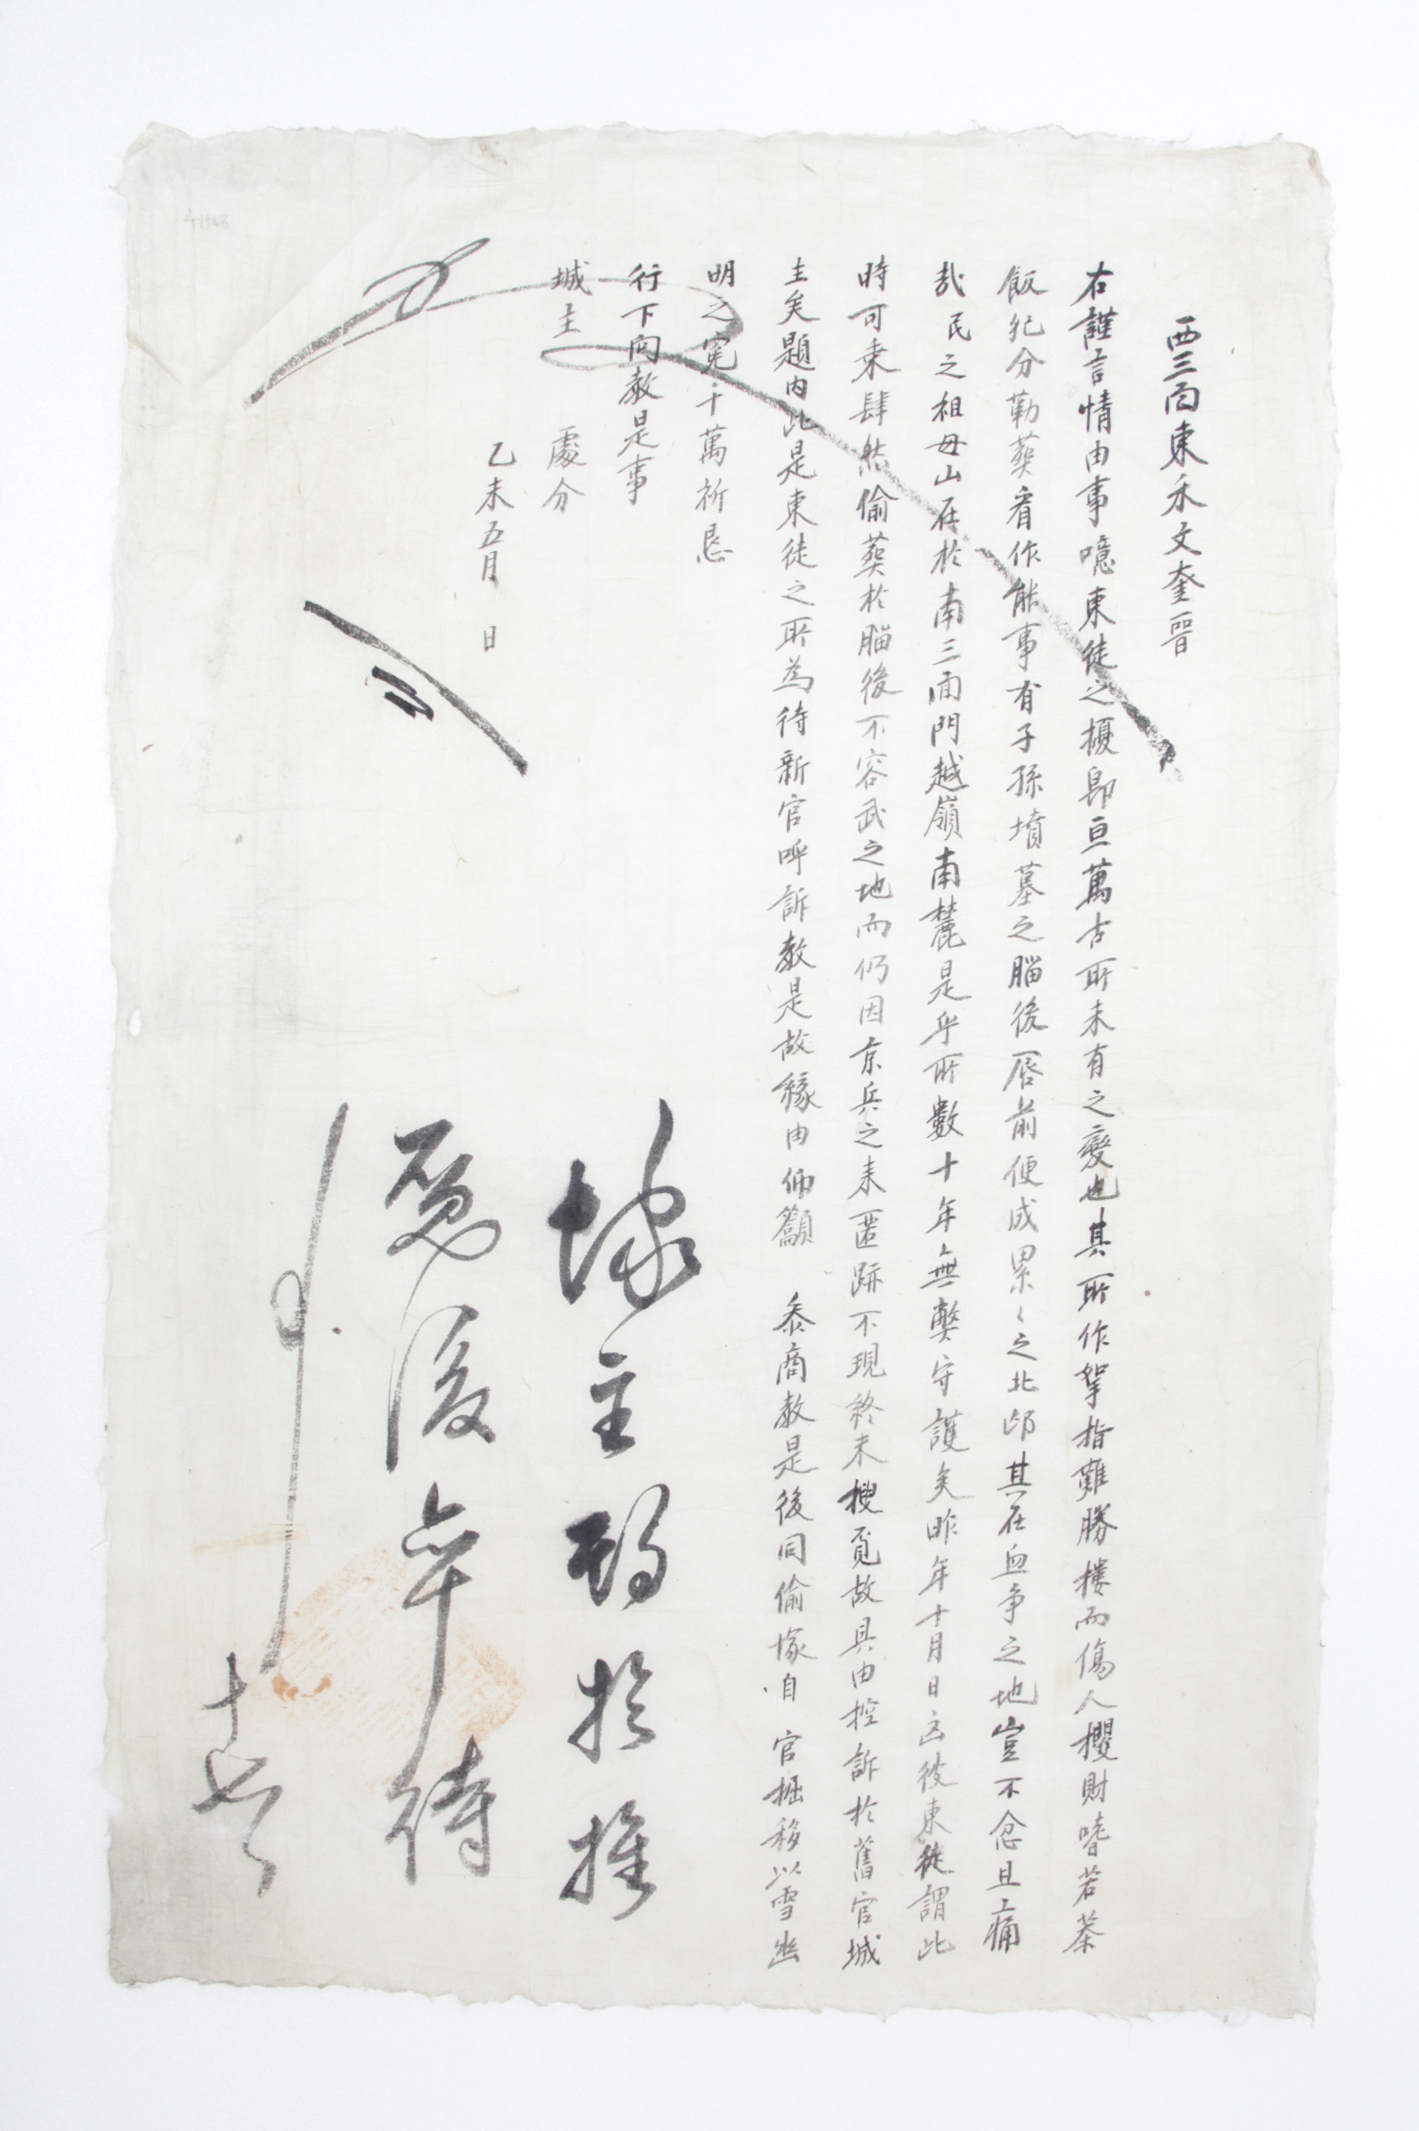 西三面東禾文奎晋
右謹言情由事噫東徒之擾卽亘萬古所未有之變也其所作挐指難勝摟而傷人攖財啫若茶
飯犯分勒葬看作能事有子孫墳墓之腦後唇前便成累〻之北邙其在血争之地豈不忿且痛
哉民之祖母山在於南三面門越嶺南麓是乎所數十年無弊守護矣昨年十月日𠮟彼東徒謂此
時可乘肆然偷葬於腦後不容武之地而仍因京兵之来匿跡不現終未搜覓故具由控訴於舊官城
主矣題內此是東徒之所為待新官呼訴教是故緣由仰籲 叅商教是後同偷塚自 官掘移以雪幽
明之寃千萬祈恳
行下向教是事
城主 處分
乙未五月 日
塚主弼於推
覓後卒待
十七